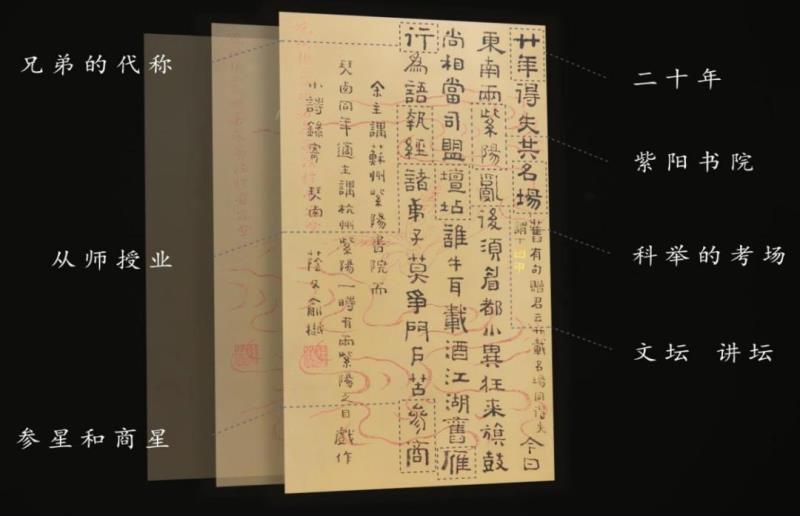 兄弟的代称
从师授业
参星和商星
二十年
紫阳书院
科举的考场
文坛 讲坛
廿年得失共名場
舊有句贈君云廿載名場同得失
今日
東南兩紫陽亂後須眉都小異狂来旗鼓
尚相當司盟壇坫誰牛耳載酒江湖舊雁
行為語執經諸弟子莫爭門戶苦參商
余主講蘇州紫陽書院而
琹南同年適主講杭州紫陽一時有兩紫陽之目戲作
小詩錄寄 琹南 蔭甫俞樾